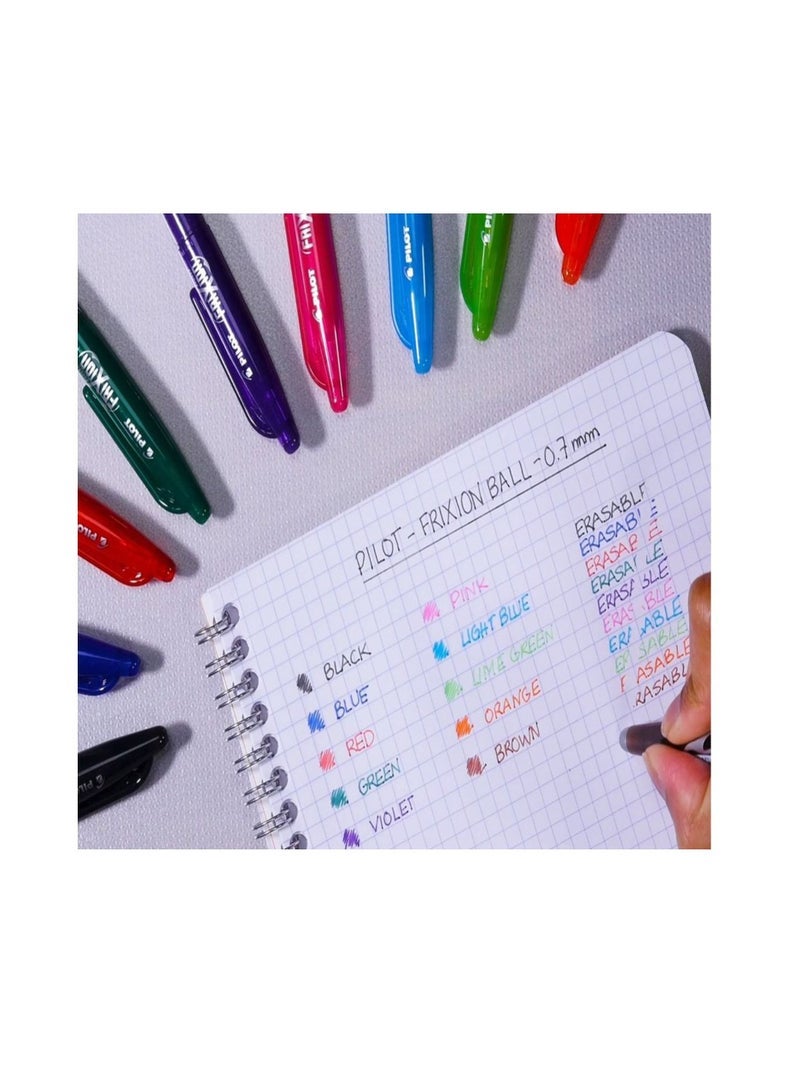 FRIXION PILOT
FRIXION PILOT
FRIX PILOT
PILOT
PILOT
PILOT
PILOT
PILOT - FRIXION BALL - 0.7mm
BLACK
BLUE
RED
GREEN
VIOLET
PINK
LIGHT BLUE
LIME GREEN
ORANGE
BROWN
ERASABLE
ERASAB
ERASAB E
ERASA LE
ERAS BLE
ERA BLE
ER ABLE
E SABLE
ASABLE
RASABL